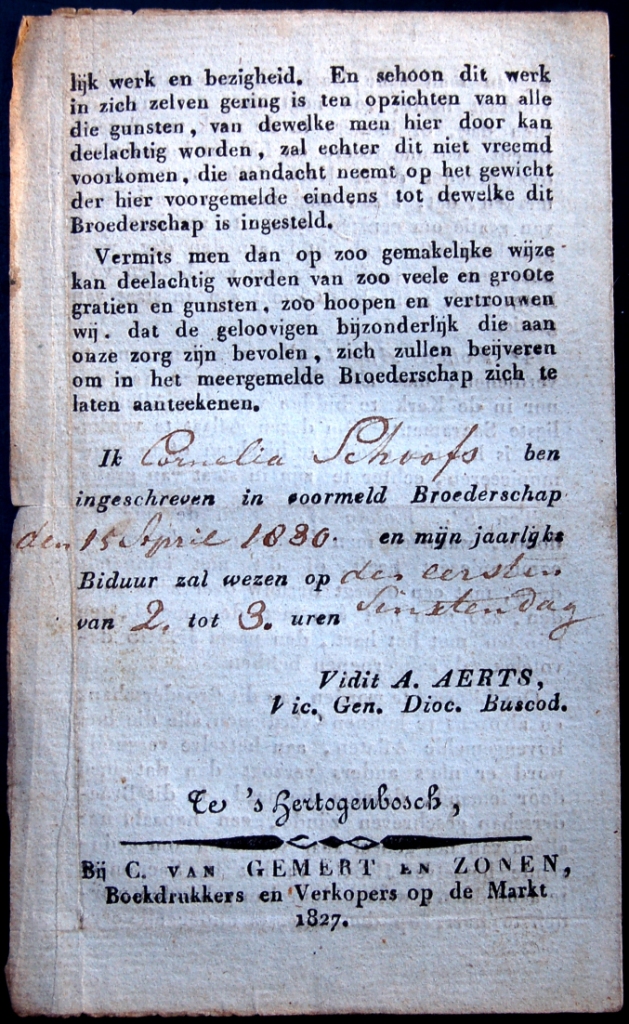 lijk werk en bezigheid. En sehoon dit werk
in zich zelven gering is ten opzichten van alle
die gunsten, van dewelke men hier door kan
deelachtig worden, zal echter dit niet vreemd
voorkomen, die aandacht neemt op het gewicht
der hier voorgemelde eindens tot dewelke dit
Broederschap is ingesteld.
Vermits men dan op zoo gemakelijke wijze
kan deelachtig worden van zoo veele en groote
gratien en gunsten, zoo hoopen en vertrouwen
wij. dat de geloovigen bijzonderlijk die aan
onze zorg zijn bevolen, zich zullen beijveren
om in het meergemelde Broederschap zich te
laten aanteekenen.
Ik Cornelia Schoofs ben
ingeschreven in voormeld Broederschap
den 15 April 1830. en mijn jaarlijks
Biduur zal wezen op den eersten
van 2. tot 3. uren Sinxtendag
Vidit A. AERTS,
Vic. Gen. Dioc. Buscod.
Te 's Hertogenbosch,
Bij C. VAN GEMERT EN ZONEN,
Boekdrukkers en Verkopers op de Markt
1827.